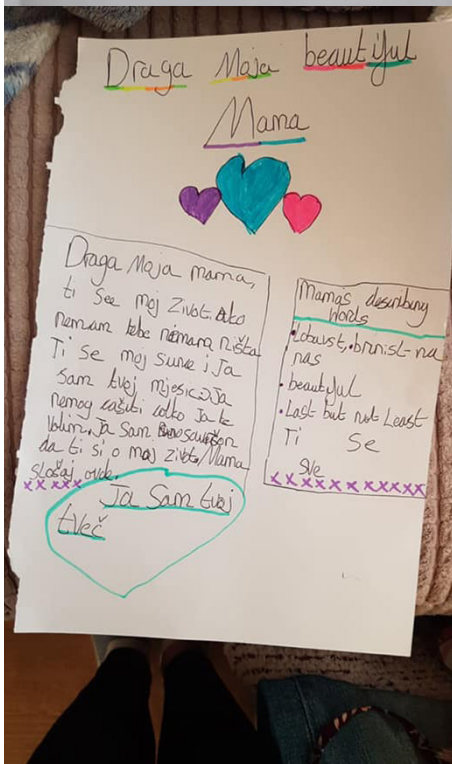 Draga Moja beautiful
Mama
Draga Moja mama,
ti See moj Zivot. Ako
nemam tebe nemam ništa
Ti Se moj Sunce i Ja
Sam tvoj mjesic. Ja
nemog zašiti colko Ja te
Volim. Ja Sam
da ti si o moj život, Mama
Slošaj ovde.
x x x x x
Ja Sam tvoj
tveč
Mamas describing
Words
• brinist na
nas
• beautiful
• Last but not Least
Ti Se
sve
x x x x x x x x x x